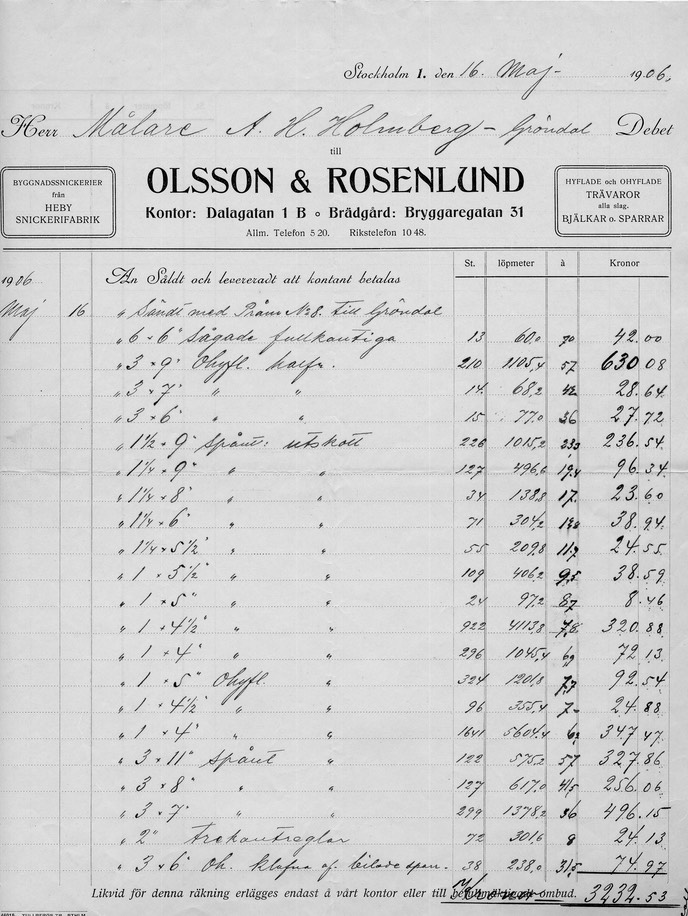 Stockholm 1. den 16. Maj- 1906.
Herr Målare A. H. Holmberg - Gröndal Debet
till
OLSSON & ROSENLUND
Kontor: Dalagatan 1 B ∘ Brädgård: Bryggaregatan 31
Allm. Telefon 5 20. Rikstelefon 10 48.
BYGGNADSSNICKERIER
från
HEBY
SNICKERIFABRIK
HYFLADE och OHYFLADE
TRÄVAROR
alla slag.
BJÄLKAR o. SPARRAR
St. löpmeter à Kronor
1906 An Såldt och levereradt att kontant betalas
Maj 16 " Sändt med Pråm No 8. till Gröndal
" 6 × 6" Sågade fullkantiga 13 60,0 70 42.00
" 3 × 9" Ohyfl. 210 1105,4 57 630 08
" 3 × 7" " " 14. 68,2 42 28.64.
" 3 × 6" " " 15 77.0 36 27.72
" 1½ × 9" spånt: utskott 226 1015,2 233 236.54.
" 1¼ × 9" " " 127 496,6 19.4 96.34
" 1¼ × 8" " " 34 138,8 17. 23.60
" 1¼ × 6" " " 71 304,2 12,8 38.94.
" 1¼ × 5½" " " 55 209,8 11,7 24.55.
" 1 × 5½" " " 109 406,2 9,5 38.59
" 1 × 5" " " 24 97,2 8,7 8.46
" 1 × 4½" " " 922 4113,8 7,8 320.88
" 1 × 4" " " 296 1045,4 6,9 72.13.
" 1 × 5" Ohyfl. " 324 1201,8 7,7 92.54
" 1 × 4½" " " 96 355,4 7- 24.88
" 1 × 4" " " 1641 5604.4 6,2 347.47.
" 3 × 11" spånt " 122 575,2 57 327.86
" 3 × 8" " " 127 617,0 41,5 256.06
" 3 × 7" " " 299 1378,2 36 496.15
" 2" trekantreglar 72 301,6 8 24.13
" 3 × 6" oh. klufna af bilade sparr. 38 238,0 31,5 74.97
Likvid för denna räkning erlägges endast å vårt kontor eller till befullmäktigadt ombud. 3232.53